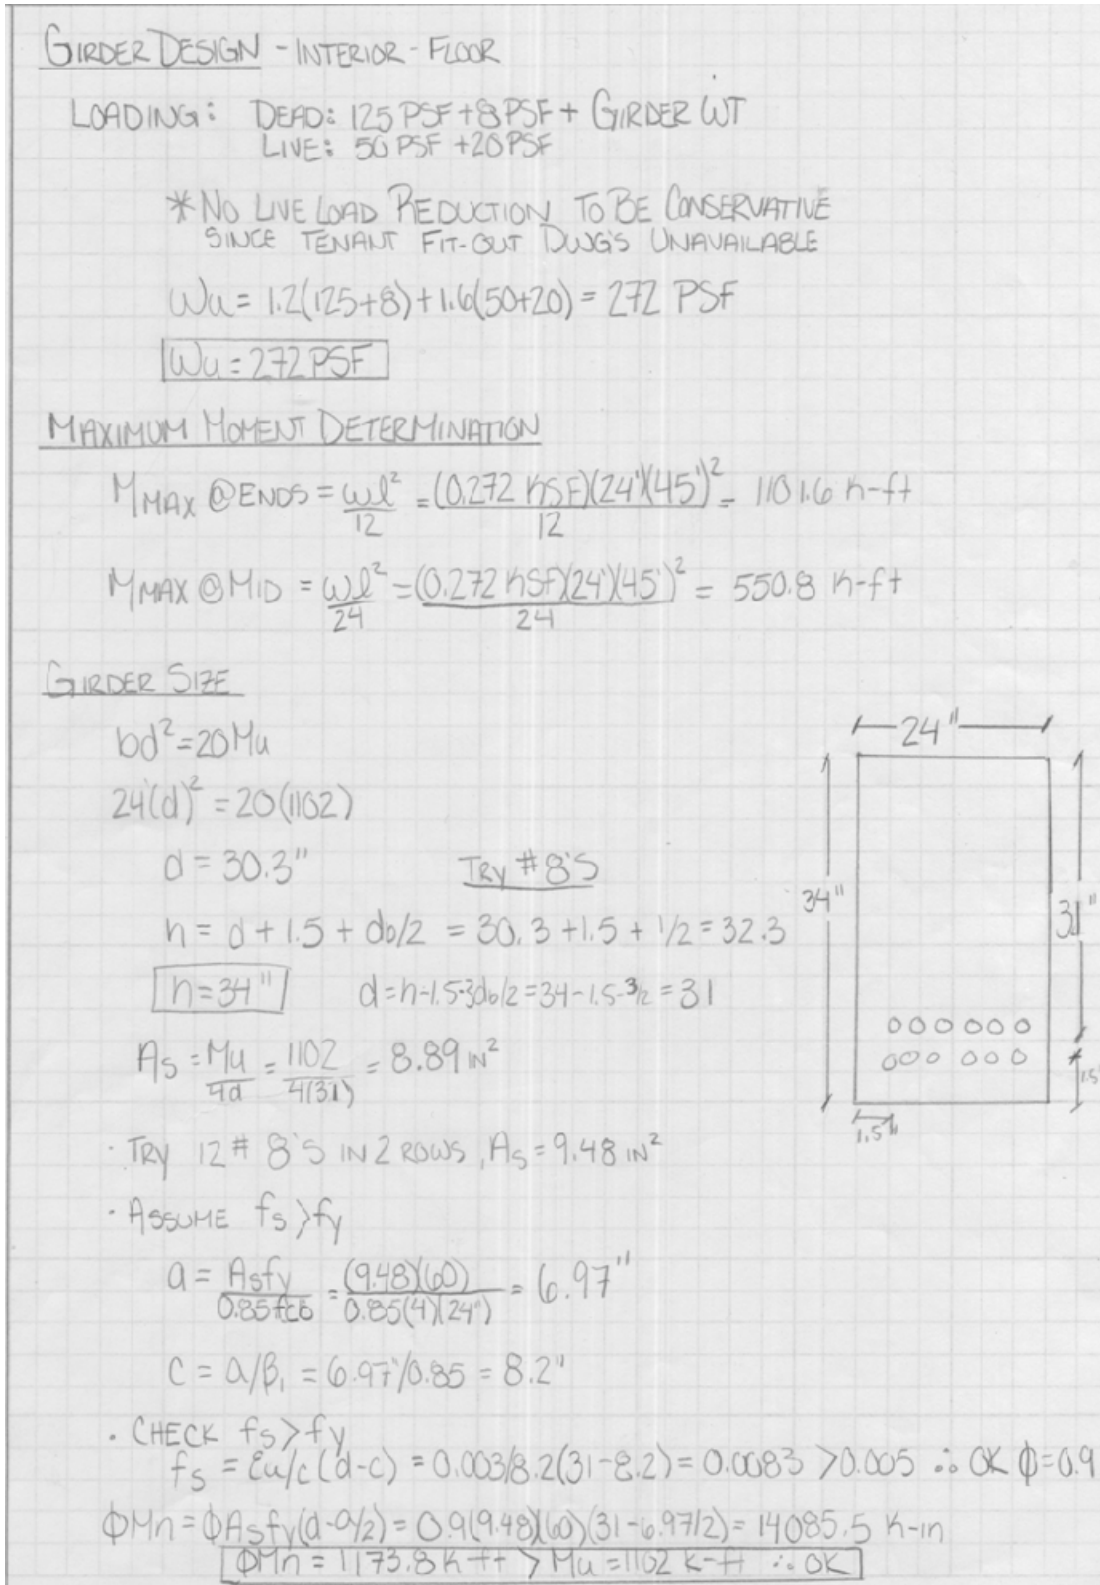 GIRDER DESIGN - INTERIOR - FLOOR
LOADING: DEAD: 125 PSF + 8 PSF + GIRDER WT
LIVE: 50 PSF + 20 PSF
*NO LIVE LOAD REDUCTION TO BE CONSERVATIVE
SINCE TENANT FIT-OUT DWG'S UNAVAILABLE
Wu = 1.2(125+8) + 1.6(50+20) = 272 PSF
Wu = 272 PSF
MAXIMUM MOMENT DETERMINATION
MMAX @ ENDS = ωl²/12 = (0.272 KSF)(24')(45')²/12 = 1101.6 K-ft
MMAX @ MID = ωl²/24 = (0.272 KSF)(24')(45')²/24 = 550.8 K-ft
GIRDER SIZE
bd² = 20Mu
24(d)² = 20(1102)
d = 30.3"
TRY #8'S
h = d + 1.5 + db/2 = 30.3 + 1.5 + 1/2 = 32.3
h = 34"
d = h-1.5-3db/2 = 34-1.5-3/2 = 31
As = Mu/4d = 1102/4(31) = 8.89 IN²
24"
34"
31"
1.5"
1.5"
· TRY 12 # 8'S IN 2 ROWS, As = 9.48 IN²
· ASSUME fs > fy
a = Asfy/0.85fcb = (9.48)(60)/0.85(4)(24") = 6.97"
C = a/β₁ = 6.97/0.85 = 8.2"
· CHECK fs > fy
fs = Eu/c (d-c) = 0.003/8.2(31-8.2) = 0.0083 > 0.005 ∴ OK ϕ=0.9
ϕMn = ϕAsfy(d-a/2) = 0.9(9.48)(60)(31-6.97/2) = 14085.5 K-in
ϕMn = 1173.8 K ft > Mu = 1102 K-ft ∴ OK